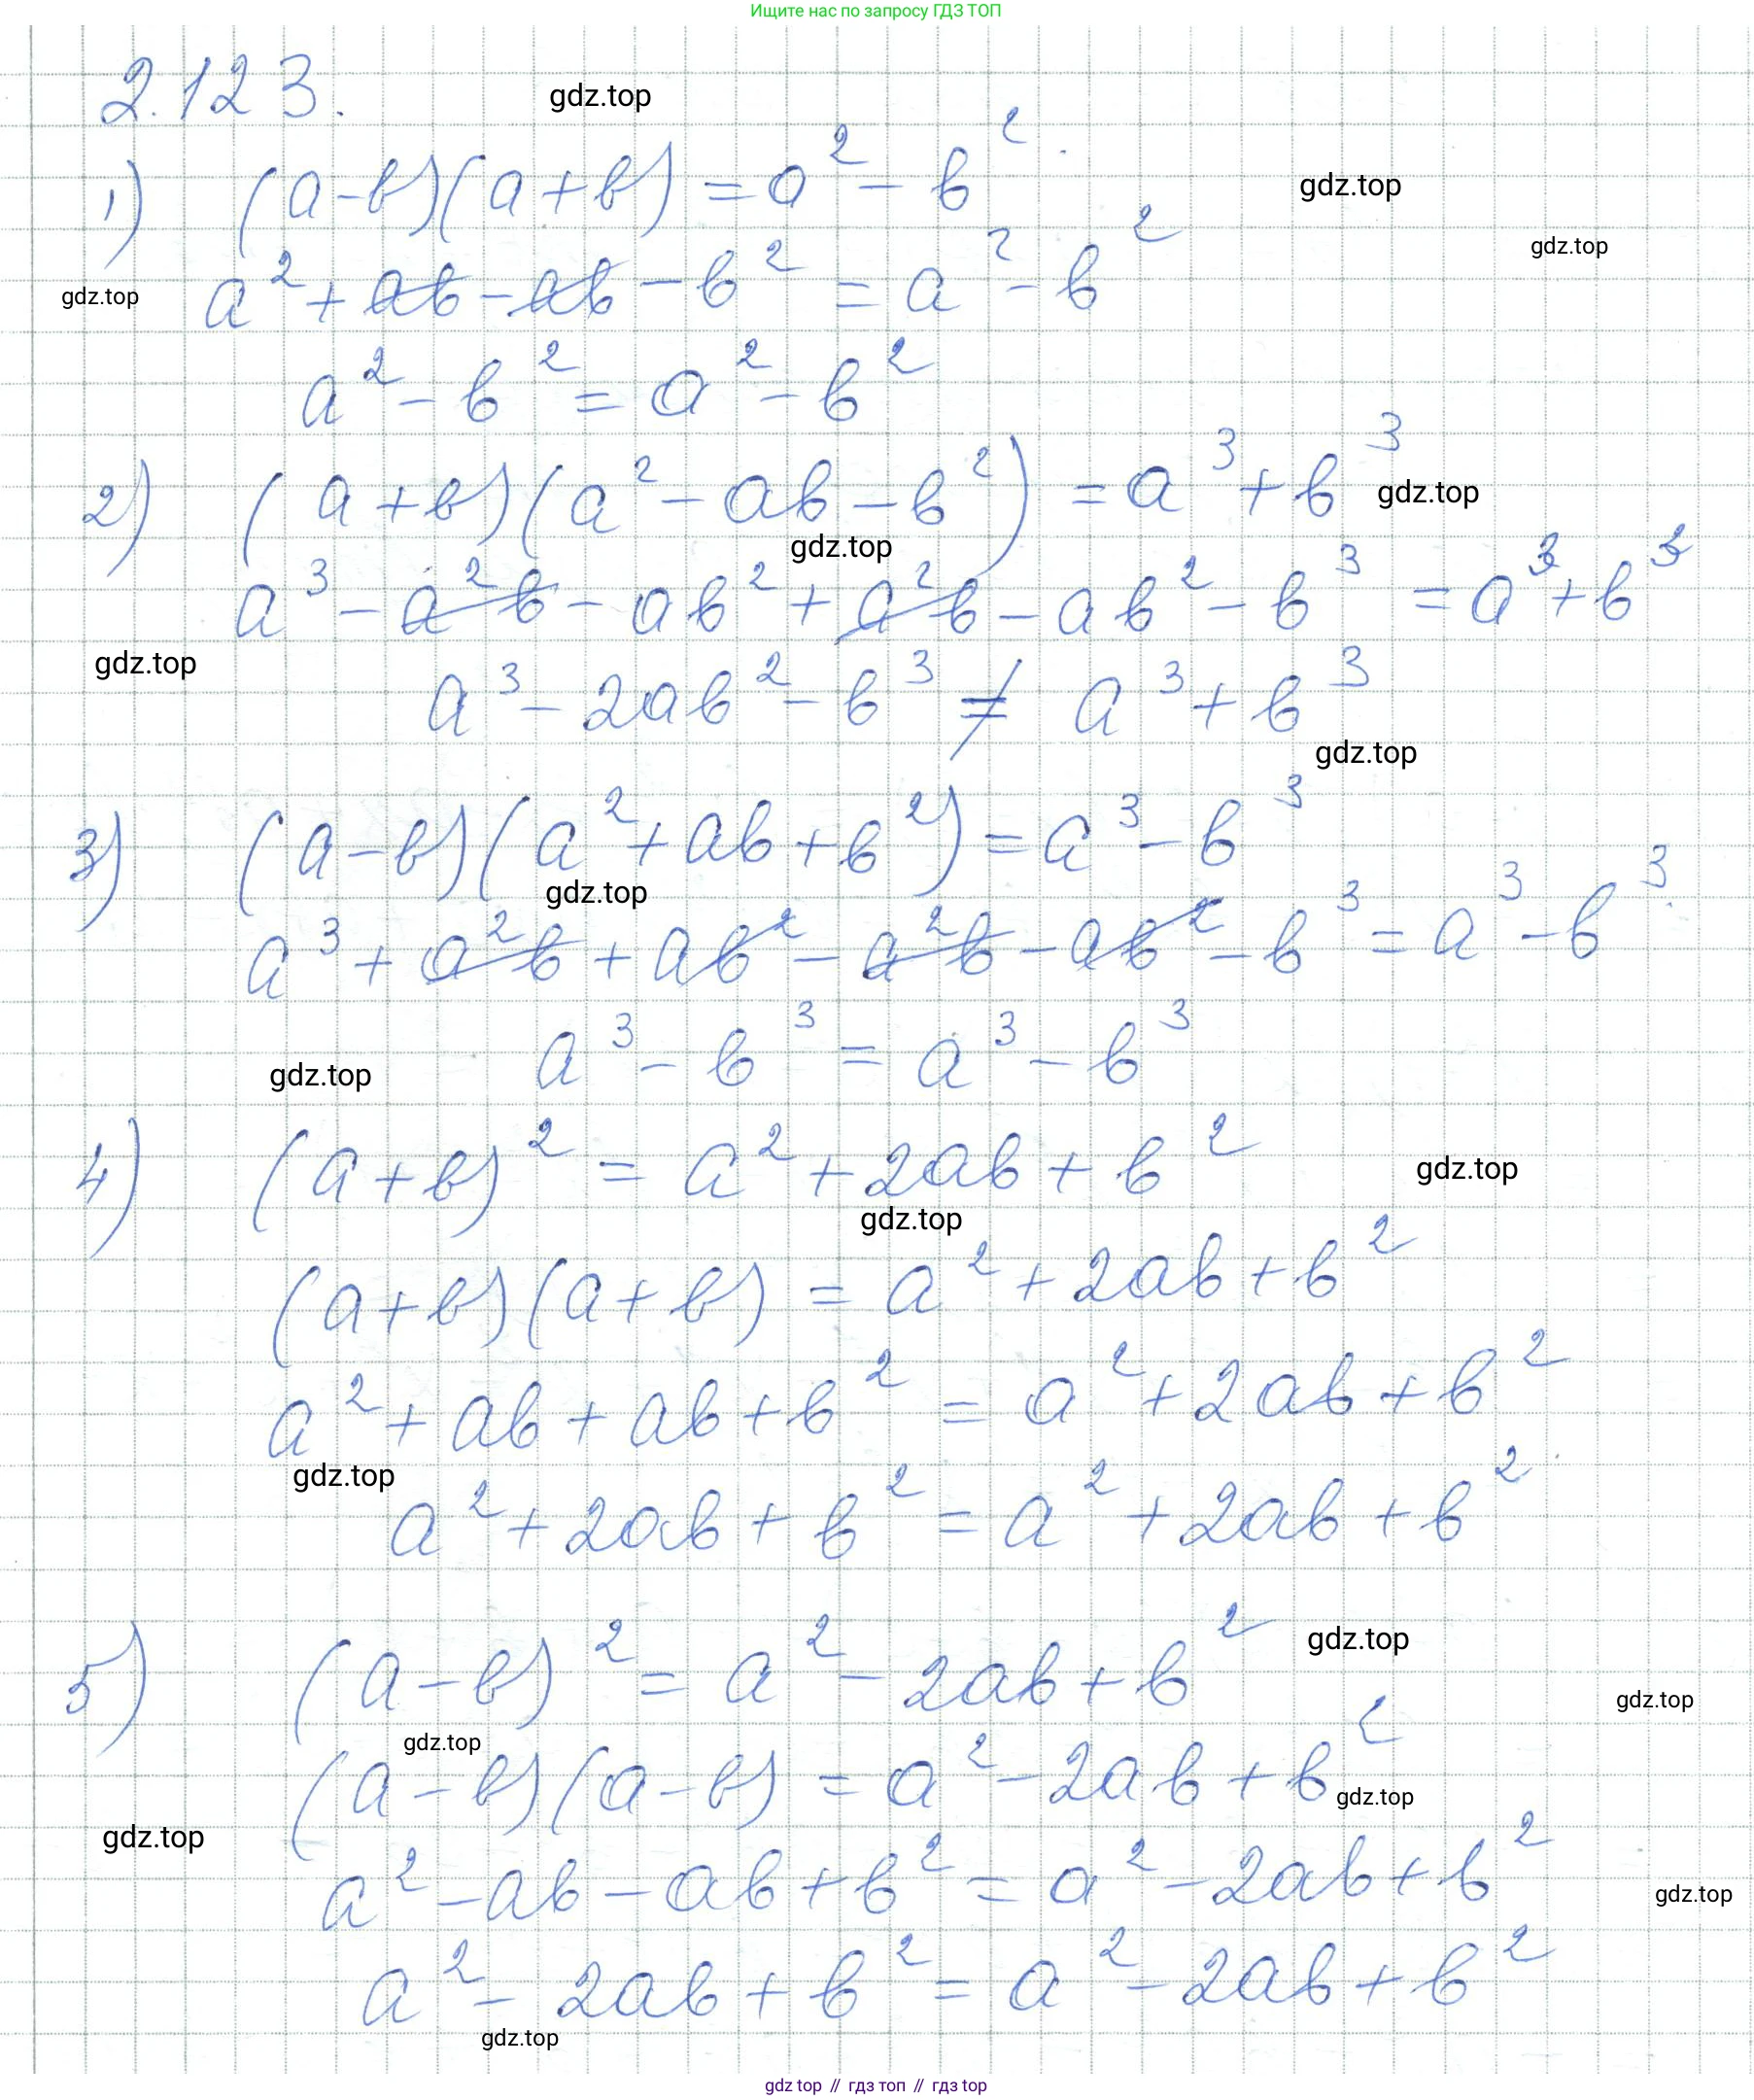 Ищите нас по запросу ГДЗ ТОП
2.123.
gdz.top
1) (a-b)(a+b) = a² - b².
gdz.top
gdz.top
gdz.top
a² + ab - ab - b² = a² - b²
a² - b² = a² - b²
2) (a+b)(a² - ab - b²) = a³ + b³
gdz.top
gdz.top
a³ - a²b - ab² + a²b - ab² - b³ = a³ + b³
gdz.top
a³ - 2ab² - b³ ≠ a³ + b³
gdz.top
3) (a-b)(a² + ab + b²) = a³ - b³
gdz.top
a³ + a²b + ab² - a²b - ab² - b³ = a³ - b³.
a³ - b³ = a³ - b³
gdz.top
4) (a+b)² = a² + 2ab + b²
gdz.top
gdz.top
(a+b)(a+b) = a² + 2ab + b²
a² + ab + ab + b² = a² + 2ab + b²
gdz.top
a² + 2ab + b² = a² + 2ab + b²
5) (a-b)² = a² - 2ab + b²
gdz.top
gdz.top
gdz.top
(a-b)(a-b) = a² - 2ab + b²
gdz.top
gdz.top
a² - ab - ab + b² = a² - 2ab + b²
gdz.top
a² - 2ab + b² = a² - 2ab + b²
gdz.top
gdz top // гдз топ // гдз top